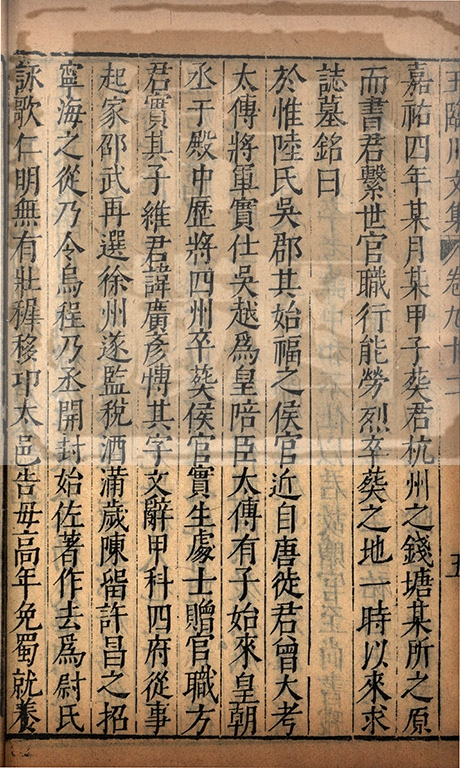 王臨川文集 卷九十二 五
嘉祐四年某月某甲子葬君杭州之錢塘某所之原
而書君繫世官職行能勞烈卒葬之地一時以來求
誌墓銘曰
於惟陸氏吳郡其始福之侯官近自唐徙君曾大考
太傅將軍實仕吳越爲皇陪臣太傅有子始來皇朝
丞于殿中歷將四州卒葬侯官實生處士贈官職方
君實其子維君諱廣彥愽其字文辭甲科四府從事
起家邵武再選徐州遂監稅酒蒲歲陳留許昌之招
寧海之從乃令烏程乃丞開封始佐著作去爲尉氏
詠歌仁明無有壯穉移卭太邑告毋高年免蜀就養